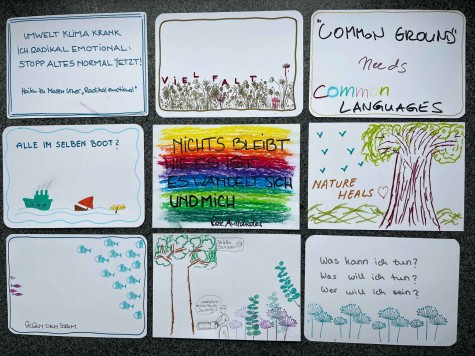 UMWELT KLIMA KRANK
ICH RADIKAL EMOTIONAL:
STOPP ALTES NORMAL JETZT!
Haiku zu Maren Urner „Radikal emotional"
VIELFALT
"COMMON GROUND"
Needs
Common
LANGUAGES
ALLE IM SELBEN BOOT?
NICHTS BLEIBT
ES WANDELT SICH
UND MICH
NATURE
HEALS
GEGEN DEN STROM
Was kann ich tun?
Was will ich tun?
Wer will ich sein?